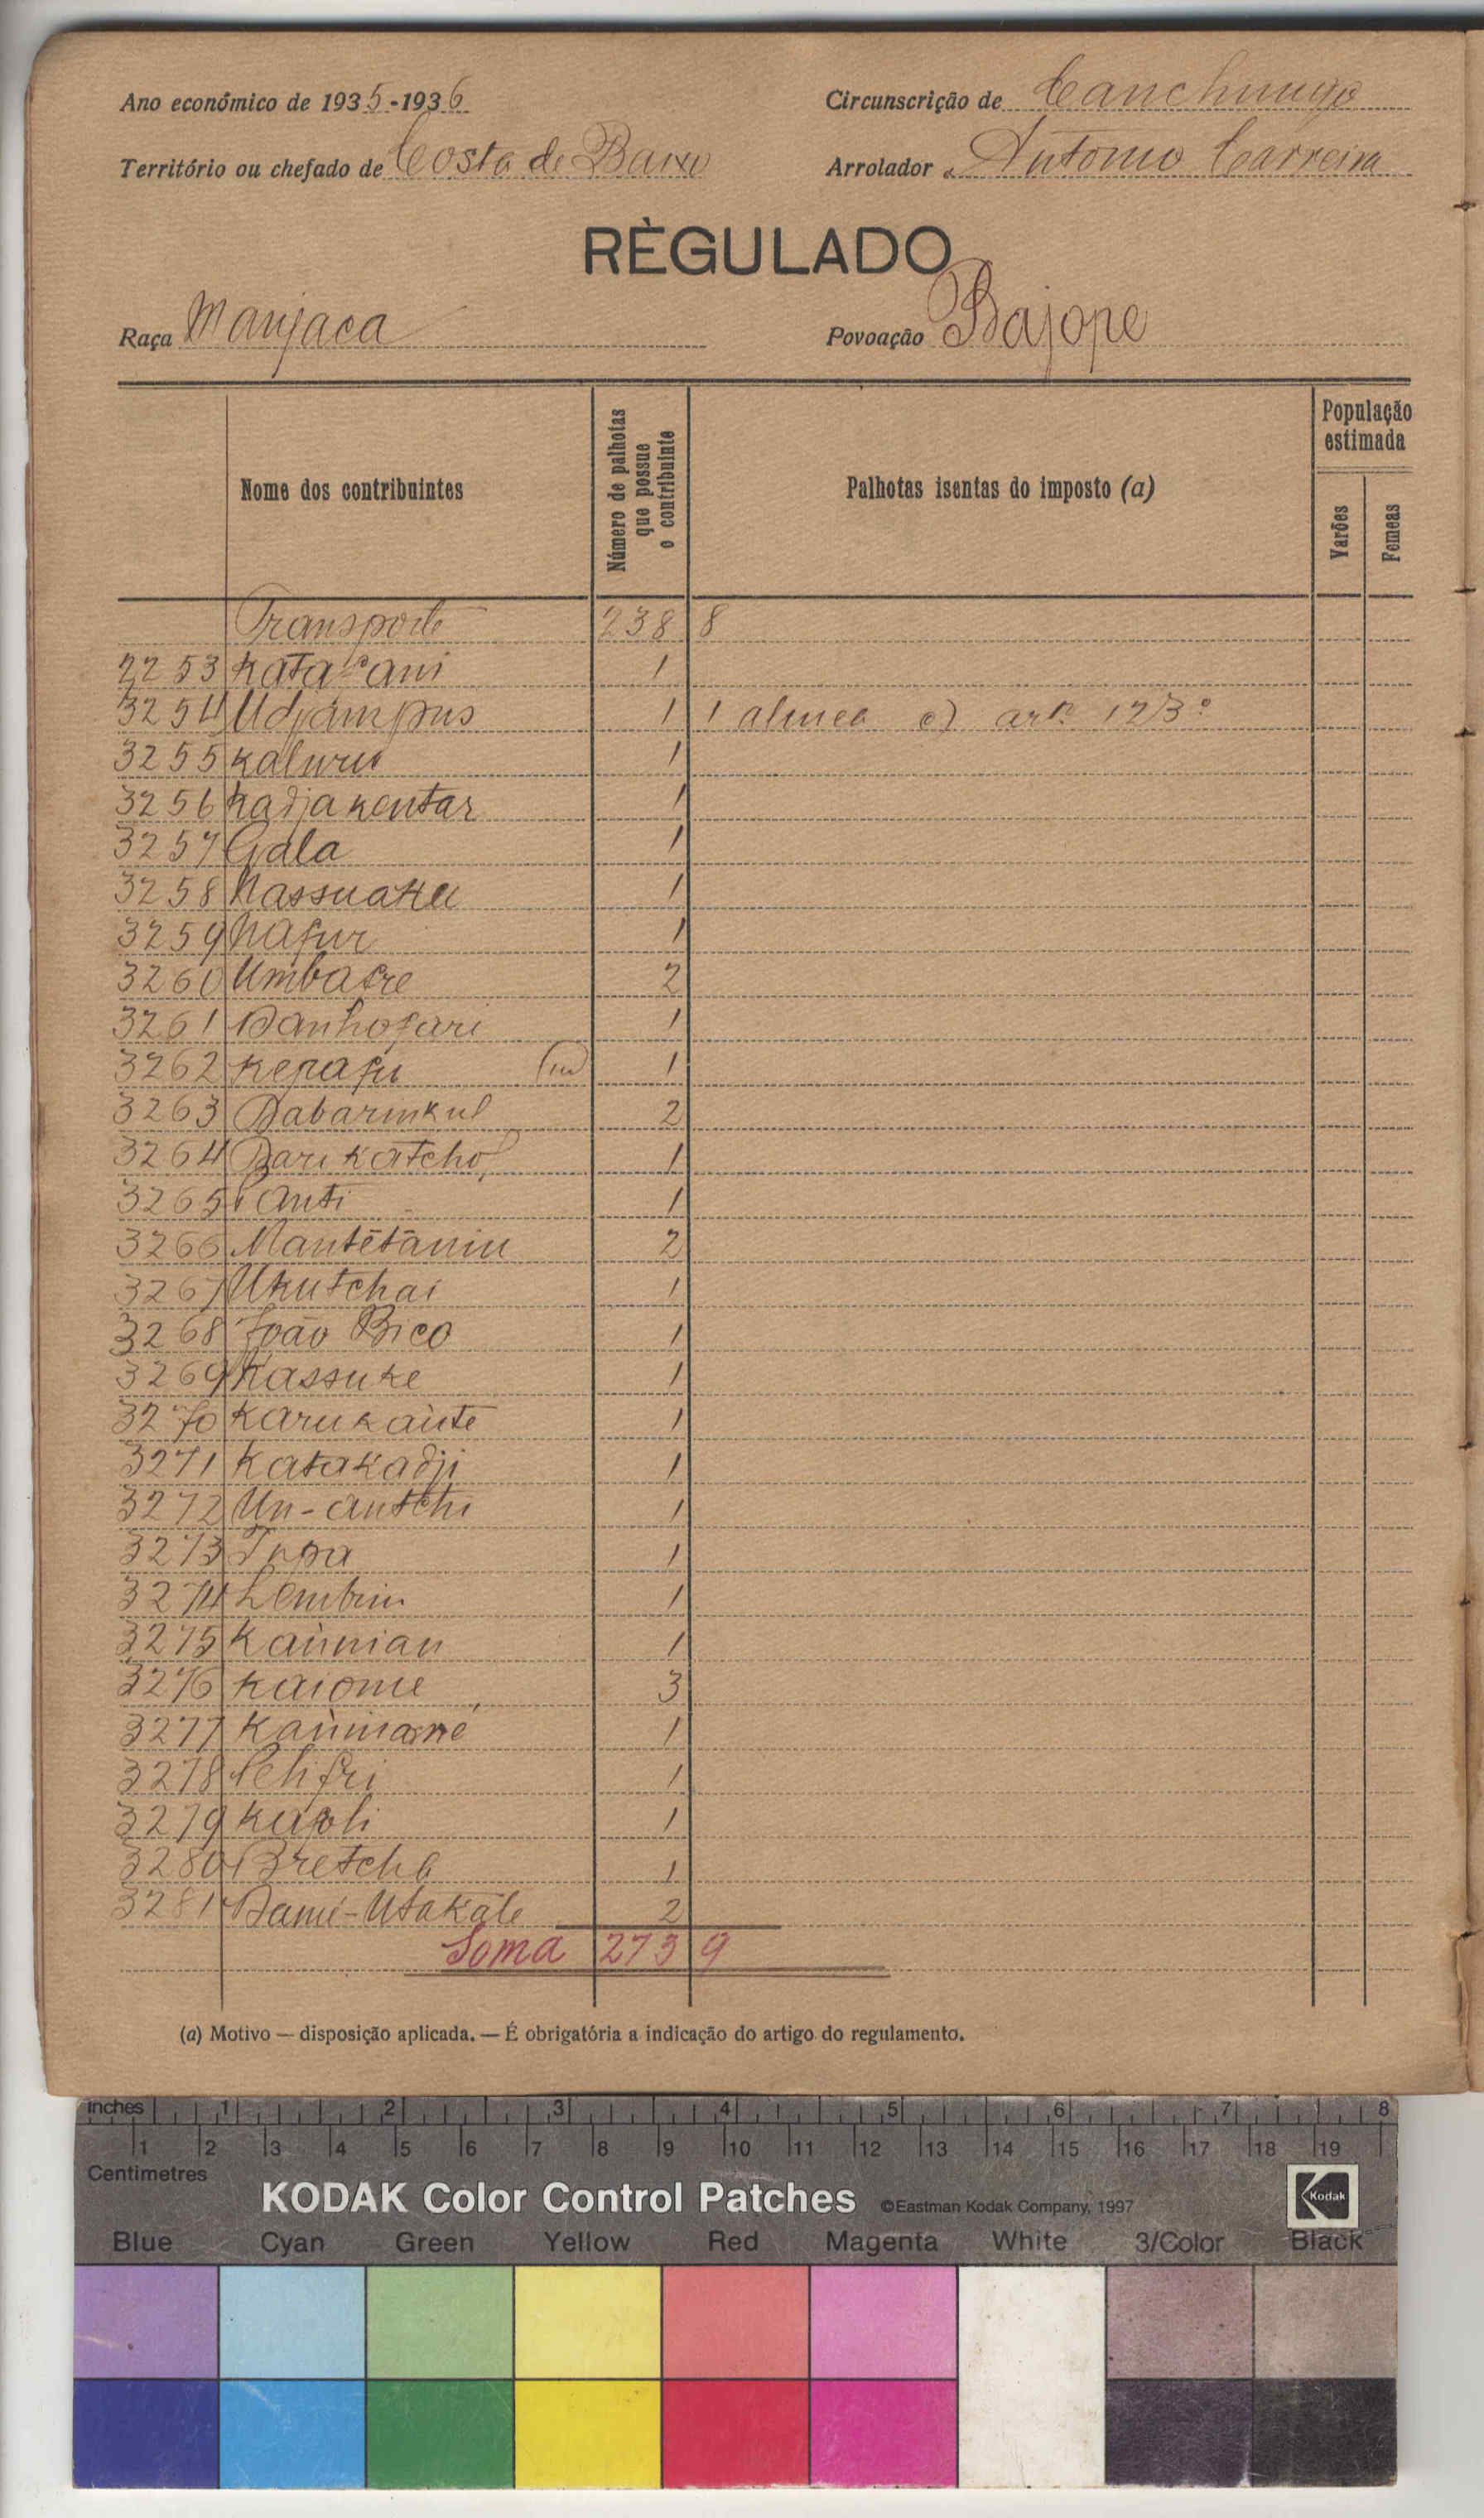 Ano económico de 1935-1936 Circunscrição de Canchungo
Território ou chefado de Costa de Baixo Arrolador Antonio Carreira
RÈGULADO
Raça Manjaca Povoação Bajope
Nome dos contribuintes
Número de palhotas que possue o contribuinte
Palhotas isentas do imposto (a)
População estimada
Varões
Femeas
Transporte 238 8
3254 Udjampus 1 1 alinea c) artº 123º
3255 1
3256 Kadjakentar 1
3257 Gala 1
3258 1
3259 Nafur 1
3260 2
3261 1
3262 1
3263 Dabarinkul 2
3264 1
3265 1
3266 2
3267 Ukutchai 1
3268 João Bico 1
3269 Kassuke 1
3270 1
3271 Katakadji 1
3272 Un-antchi 1
3273 1
3274 1
3275 1
3276 Kaiome 3
3277 1
3278 1
3279 1
3280 Bretcha 1
3281 2
Soma 273 9
(a) Motivo — disposição aplicada. — É obrigatória a indicação do artigo do regulamento.
Inches 1 2 3 4 5 6 7 8
1 2 3 4 5 6 7 8 9 10 11 12 13 14 15 16 17 18 19
Centimetres
KODAK Color Control Patches ©Eastman Kodak Company, 1997 Kodak
Blue Cyan Green Yellow Red Magenta White 3/Color Black